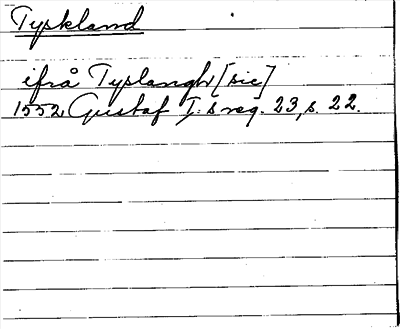 Tyskland
ifrå Tyslangh [sic]
1552. Gustaf I:s reg. 23, s. 22.